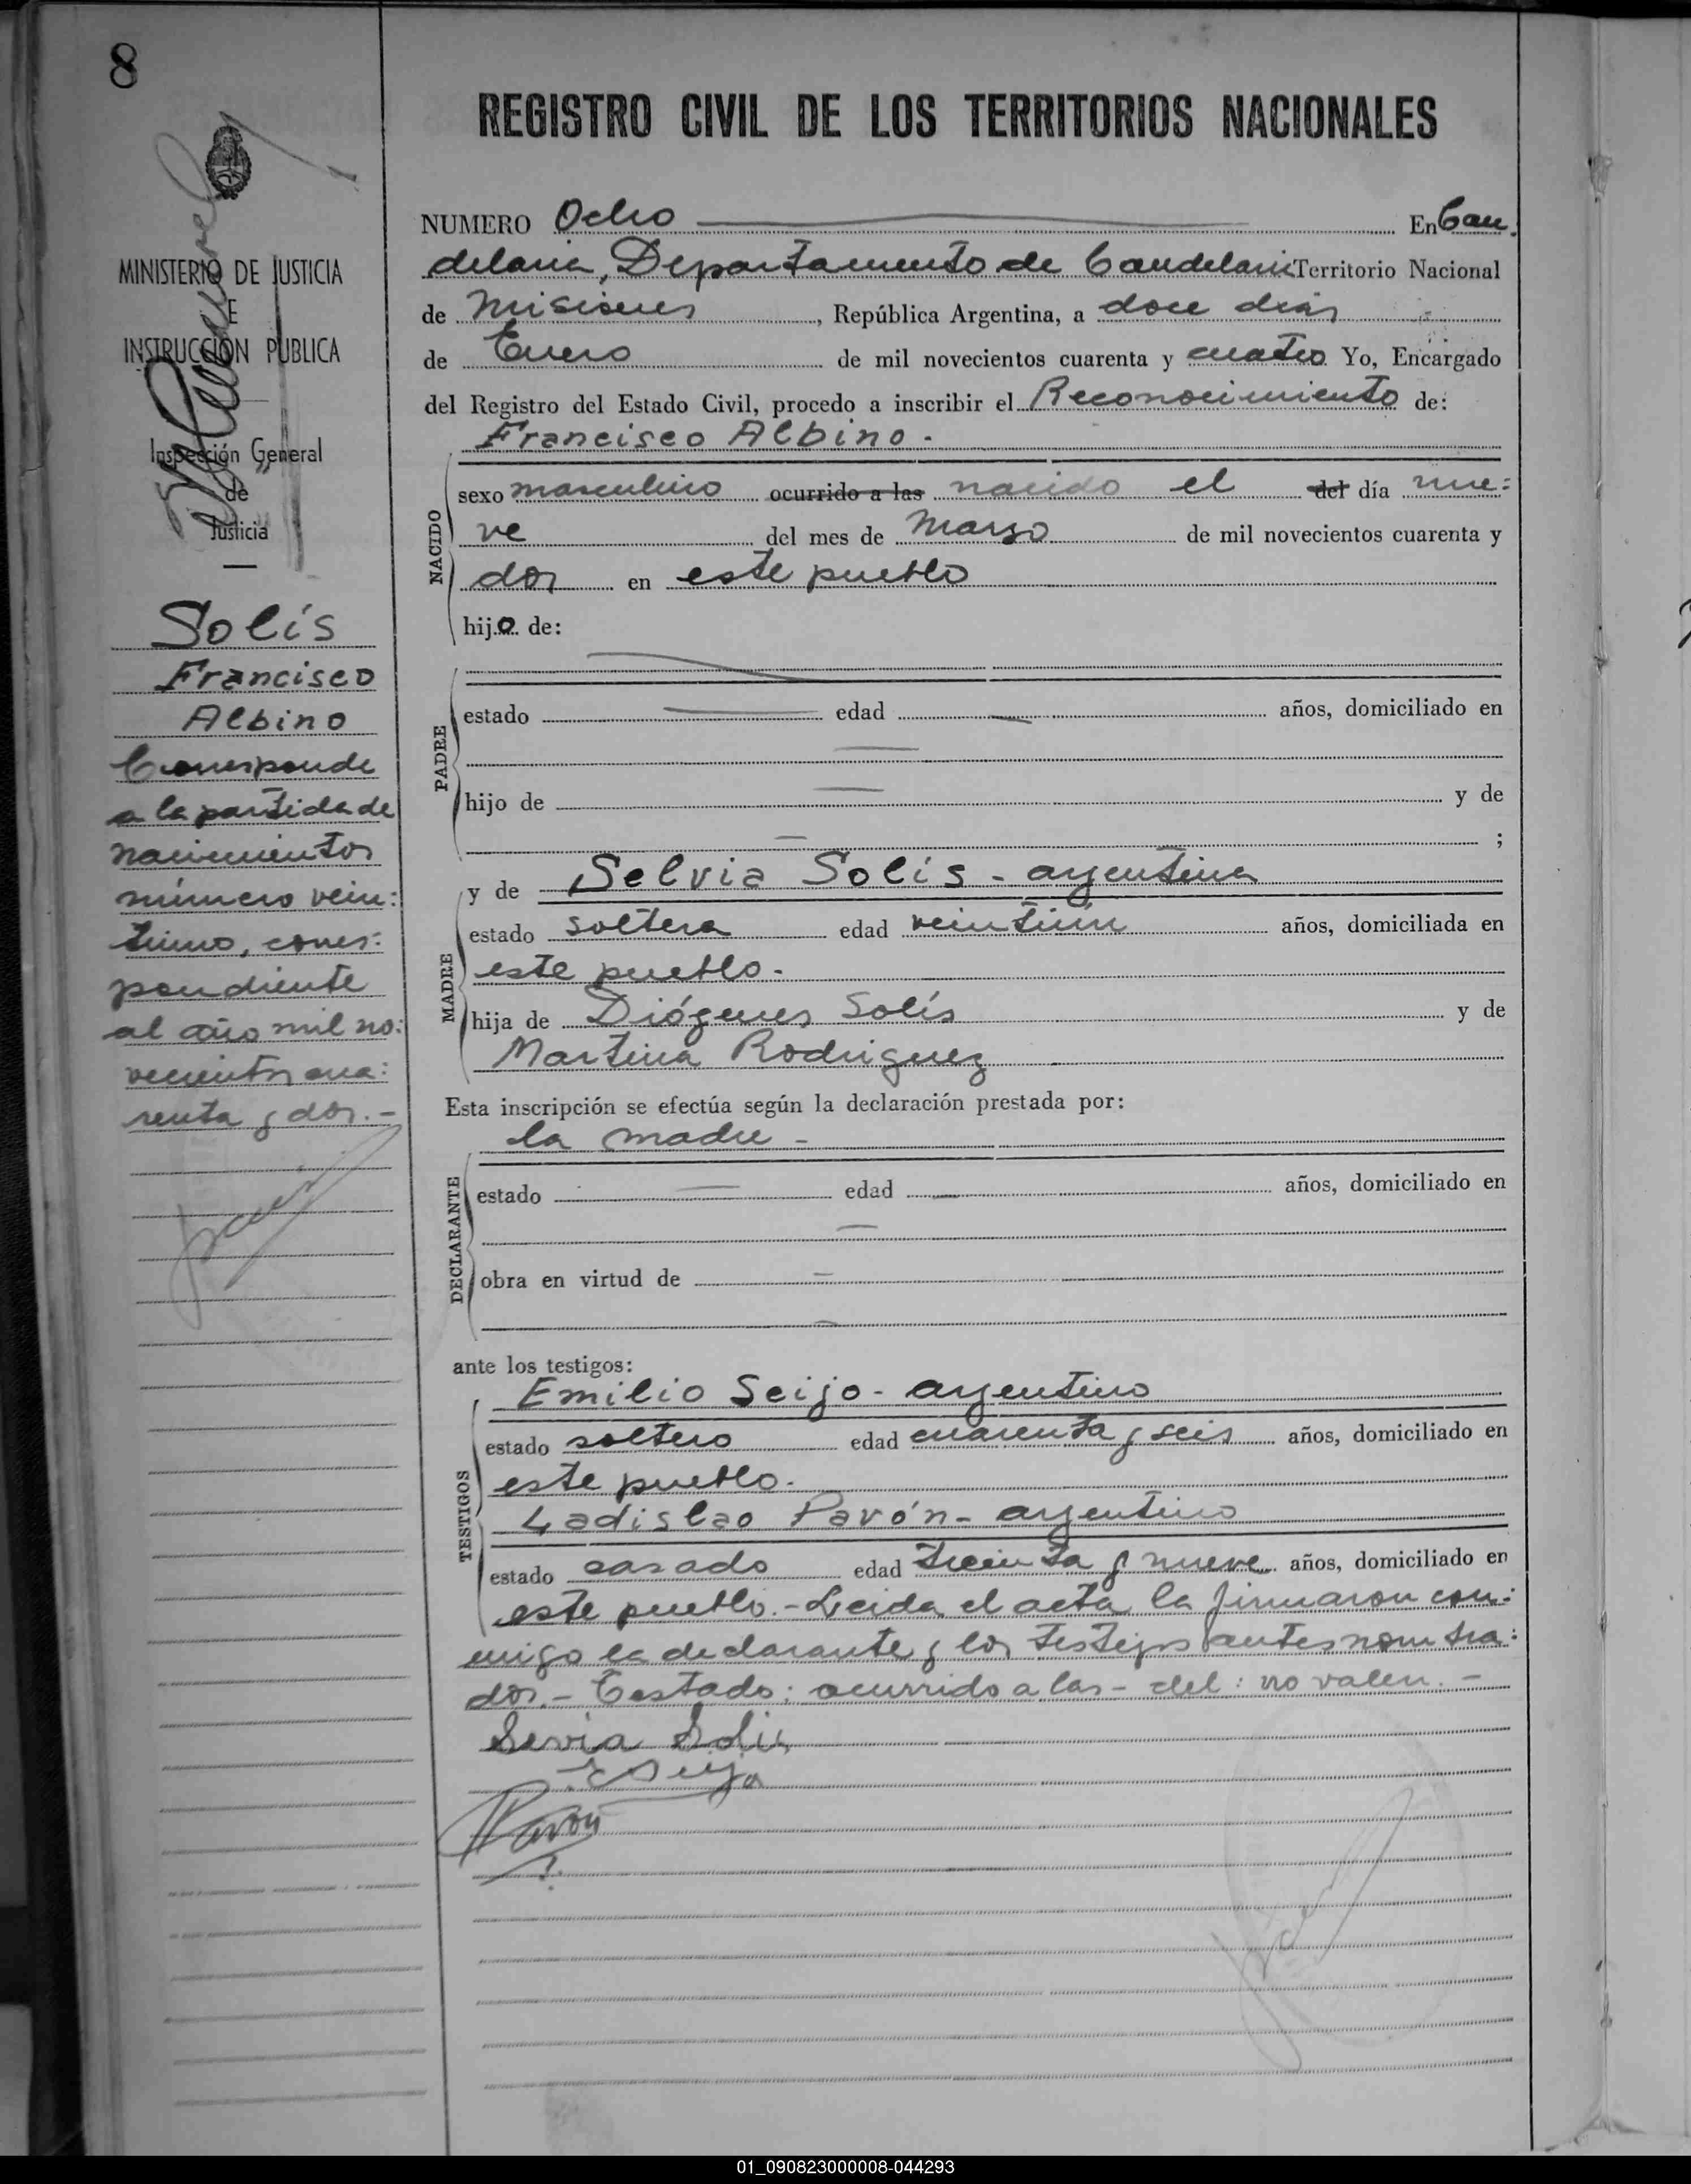 8
REGISTRO CIVIL DE LOS TERRITORIOS NACIONALES
MINISTERIO DE JUSTICIA
E
INSTRUCCIÓN PUBLICA
Inspección General
de
Justicia
Solís
Francisco
Albino
Corresponde
a la partida de
nacimientos
número vein:
tiuno, corres:
pondiente
al año mil no:
vecientos cua:
renta y dos.-
NUMERO Ocho En Can:
delaria, Departamento de Candelaria Territorio Nacional
de Misiones, República Argentina, a doce dias
de Enero de mil novecientos cuarenta y cuatro Yo, Encargado
del Registro del Estado Civil, procedo a inscribir el Reconocimiento de:
Francisco Albino.
NACIDO
sexo masculino ocurrido a las nacido el del día nue:
ve del mes de Marzo de mil novecientos cuarenta y
dos en este pueblo
hijo de:
PADRE
estado edad años, domiciliado en
hijo de y de
;
MADRE
y de Selvia Solís - argentina
estado soltera edad veintiún años, domiciliada en
este pueblo.
hija de Diógenes Solís y de
Martina Rodriguez
Esta inscripción se efectúa según la declaración prestada por:
la madre -
DECLARANTE
estado edad años, domiciliado en
obra en virtud de
ante los testigos:
TESTIGOS
Emilio Seijo - argentino
estado soltero edad cuarenta y seis años, domiciliado en
este pueblo.
Ladislao Pavón - argentino
estado casado edad treinta y nueve años, domiciliado en
este pueblo.- Leida el acta la firmaron con:
migo la declarante y los testigos antes nombra:
dos.- Testado: ocurrido a las - del: no valen.-
Servia Solis
E Seijo
Pavón
01_090823000008-044293